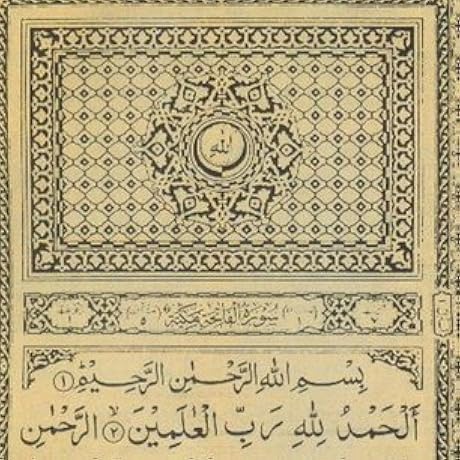 الله
سُورَةُ الفَاتِحَةِ مَكِّيَّة
بِسْمِ اللهِ الرَّحْمٰنِ الرَّحِيْمِ ۝١
اَلْحَمْدُ لِلّٰهِ رَبِّ الْعٰلَمِيْنَ ۝٢ الرَّحْمٰنِ